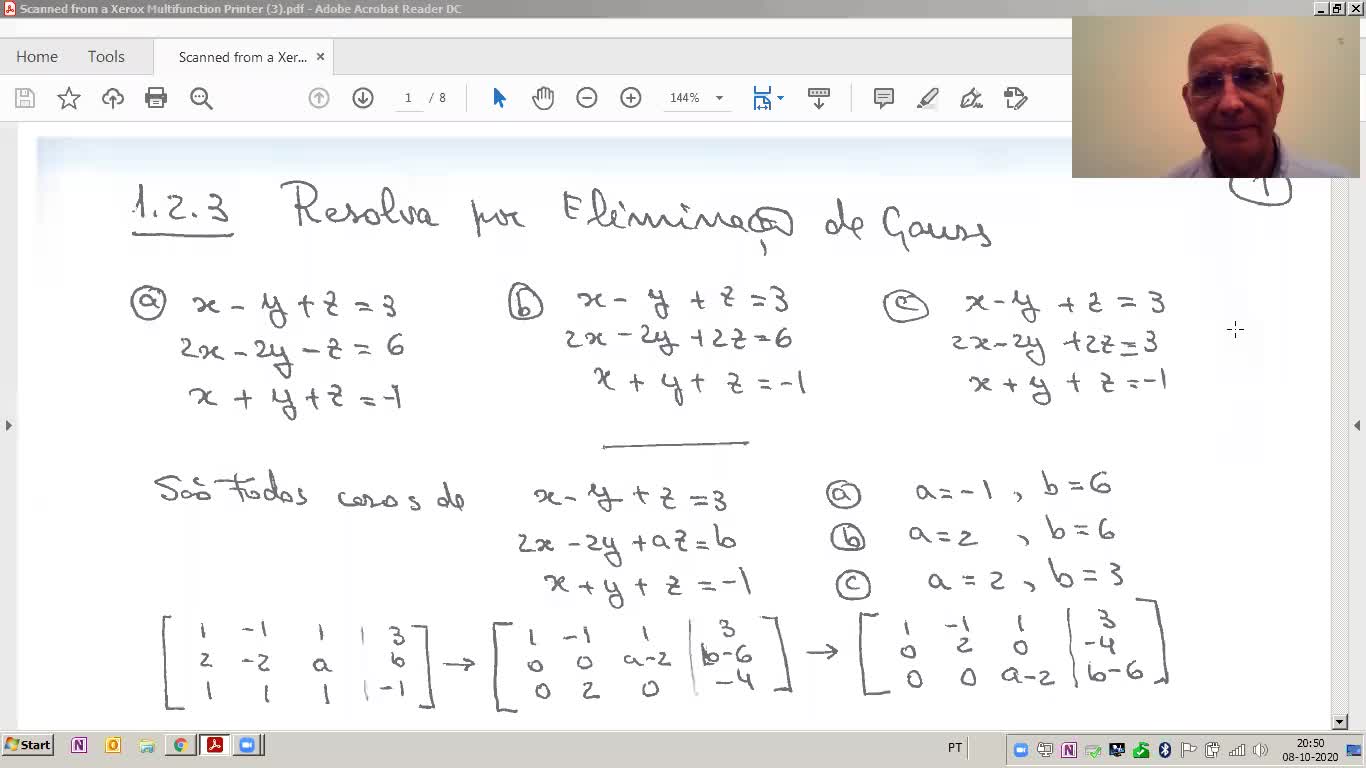 Scanned from a Xerox Multifunction Printer (3).pdf - Adobe Acrobat Reader DC
Home Tools Scanned from a Xer... ×
1 / 8 144%
1
1.2.3 Resolva por Eliminação de Gauss
a x - y + z = 3
2x - 2y - z = 6
x + y + z = -1
b x - y + z = 3
2x - 2y + 2z = 6
x + y + z = -1
c x - y + z = 3
2x - 2y + 2z = 3
x + y + z = -1
São todos casos de
x - y + z = 3
2x - 2y + az = b
x + y + z = -1
a a = -1, b = 6
b a = 2, b = 6
c a = 2, b = 3
[ 1 -1 1 | 3 ]
[ 2 -2 a | b ]
[ 1 1 1 | -1 ]
→
[ 1 -1 1 | 3 ]
[ 0 0 a-2 | b-6 ]
[ 0 2 0 | -4 ]
→
[ 1 -1 1 | 3 ]
[ 0 2 0 | -4 ]
[ 0 0 a-2 | b-6 ]
Start PT 20:50
08-10-2020